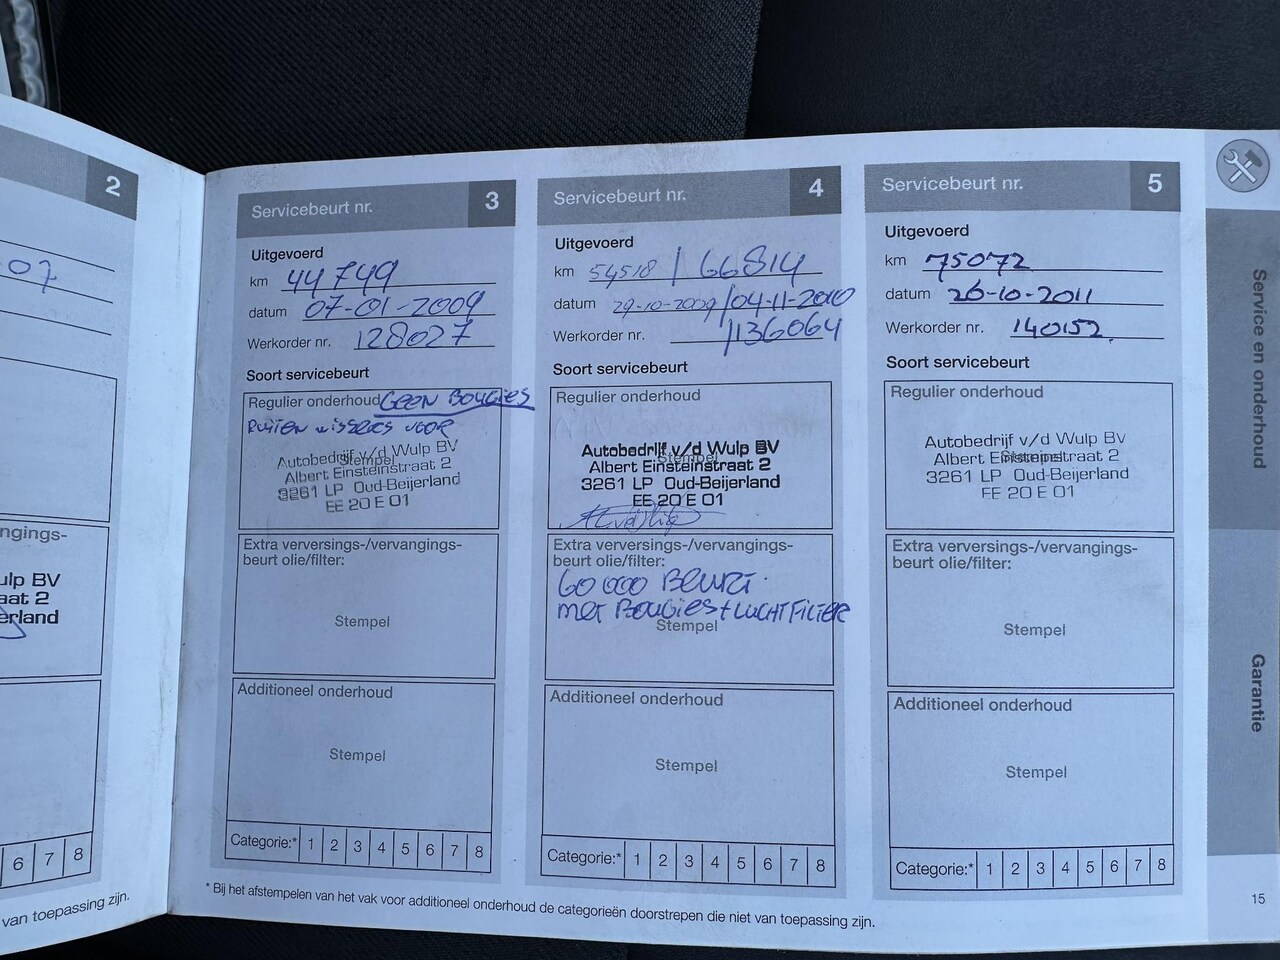 2
07
ngings-
ulp BV
aat 2
erland
6 7 8
van toepassing zijn.
Servicebeurt nr. 3
Uitgevoerd
km 44749
datum 07-01-2009
Werkorder nr. 128027
Soort servicebeurt
Regulier onderhoud GEEN BOUGIES
RUITEN WISSERS VOOR
Stempel
Autobedrijf v/d Wulp BV
Albert Einsteinstraat 2
3261 LP Oud-Beijerland
EE 20 E 01
Extra verversings-/vervangings-
beurt olie/filter:
Stempel
Additioneel onderhoud
Stempel
Categorie:* 1 2 3 4 5 6 7 8
Servicebeurt nr. 4
Uitgevoerd
km 54518 / 66814
datum 29-10-2009/04-11-2010
Werkorder nr. /136064
Soort servicebeurt
Regulier onderhoud
Stempel
Autobedrijf v/d Wulp BV
Albert Einsteinstraat 2
3261 LP Oud-Beijerland
EE 20 E 01
Extra verversings-/vervangings-
beurt olie/filter:
60 000 Beurt.
met BOUGIES + LUCHTFILTER
Stempel
Additioneel onderhoud
Stempel
Categorie:* 1 2 3 4 5 6 7 8
Servicebeurt nr. 5
Uitgevoerd
km 75072
datum 26-10-2011
Werkorder nr. 140152.
Soort servicebeurt
Regulier onderhoud
Stempel
Autobedrijf v/d Wulp BV
Albert Einsteinstraat 2
3261 LP Oud-Beijerland
EE 20 E 01
Extra verversings-/vervangings-
beurt olie/filter:
Stempel
Additioneel onderhoud
Stempel
Categorie:* 1 2 3 4 5 6 7 8
* Bij het afstempelen van het vak voor additioneel onderhoud de categorieën doorstrepen die niet van toepassing zijn.
Service en onderhoud
Garantie
15